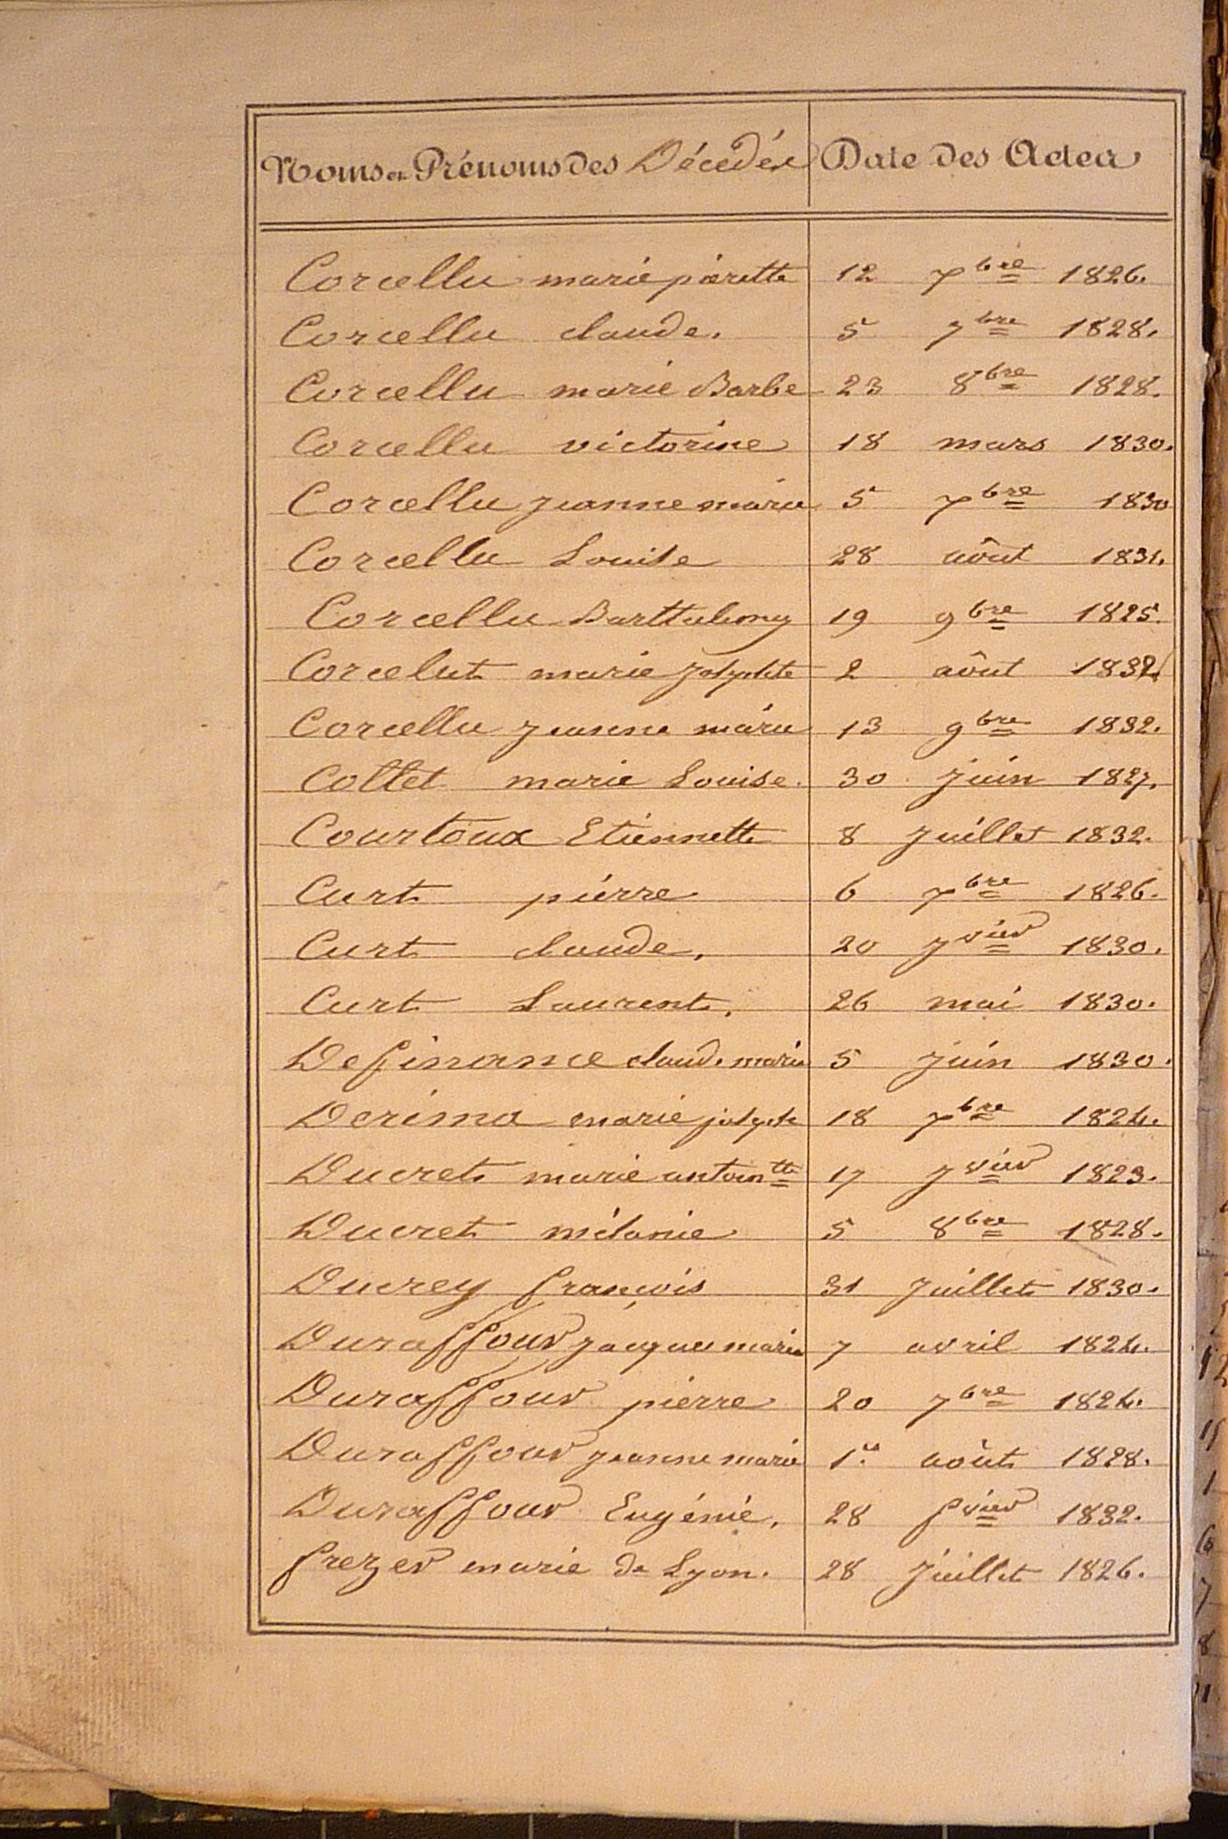 Noms et Prénoms des Décédés Date des Actes
Corcellu marie pierette 12 7bre 1826.
Corcellu claude. 5 7bre 1828.
Corcellu marie Barbe 23 8bre 1828.
Corcellu victorine 18 mars 1830.
Corcellu jeanne marie 5 7bre 1830
Corcellu Louise 28 aôut 1831.
Corcellu 19 9bre 1825.
Corcelut marie 2 aôut 1832
Corcellu jeanne marie 13 9bre 1832.
Collet marie Louise. 30 juin 1827.
Courtoux Etiennette 8 juillet 1832.
Curt pierre 6 7bre 1826.
Curt claude. 20 jvier 1830.
Curt Laurent. 26 mai 1830.
Definance claude marie 5 juin 1830.
Derima marie 18 7bre 1824.
Ducret marie antointte 17 jvier 1823.
Ducret mélanie 5 8bre 1828.
Ducrey françois 31 juillet 1830.
Duraffour jacques marie 7 avril 1824.
Duraffour pierre 20 7bre 1824.
Duraffour jeanne marie 1er aôut 1828.
Duraffour Eugénie. 28 fvier 1832.
frezer marie de Lyon. 28 juillet 1826.